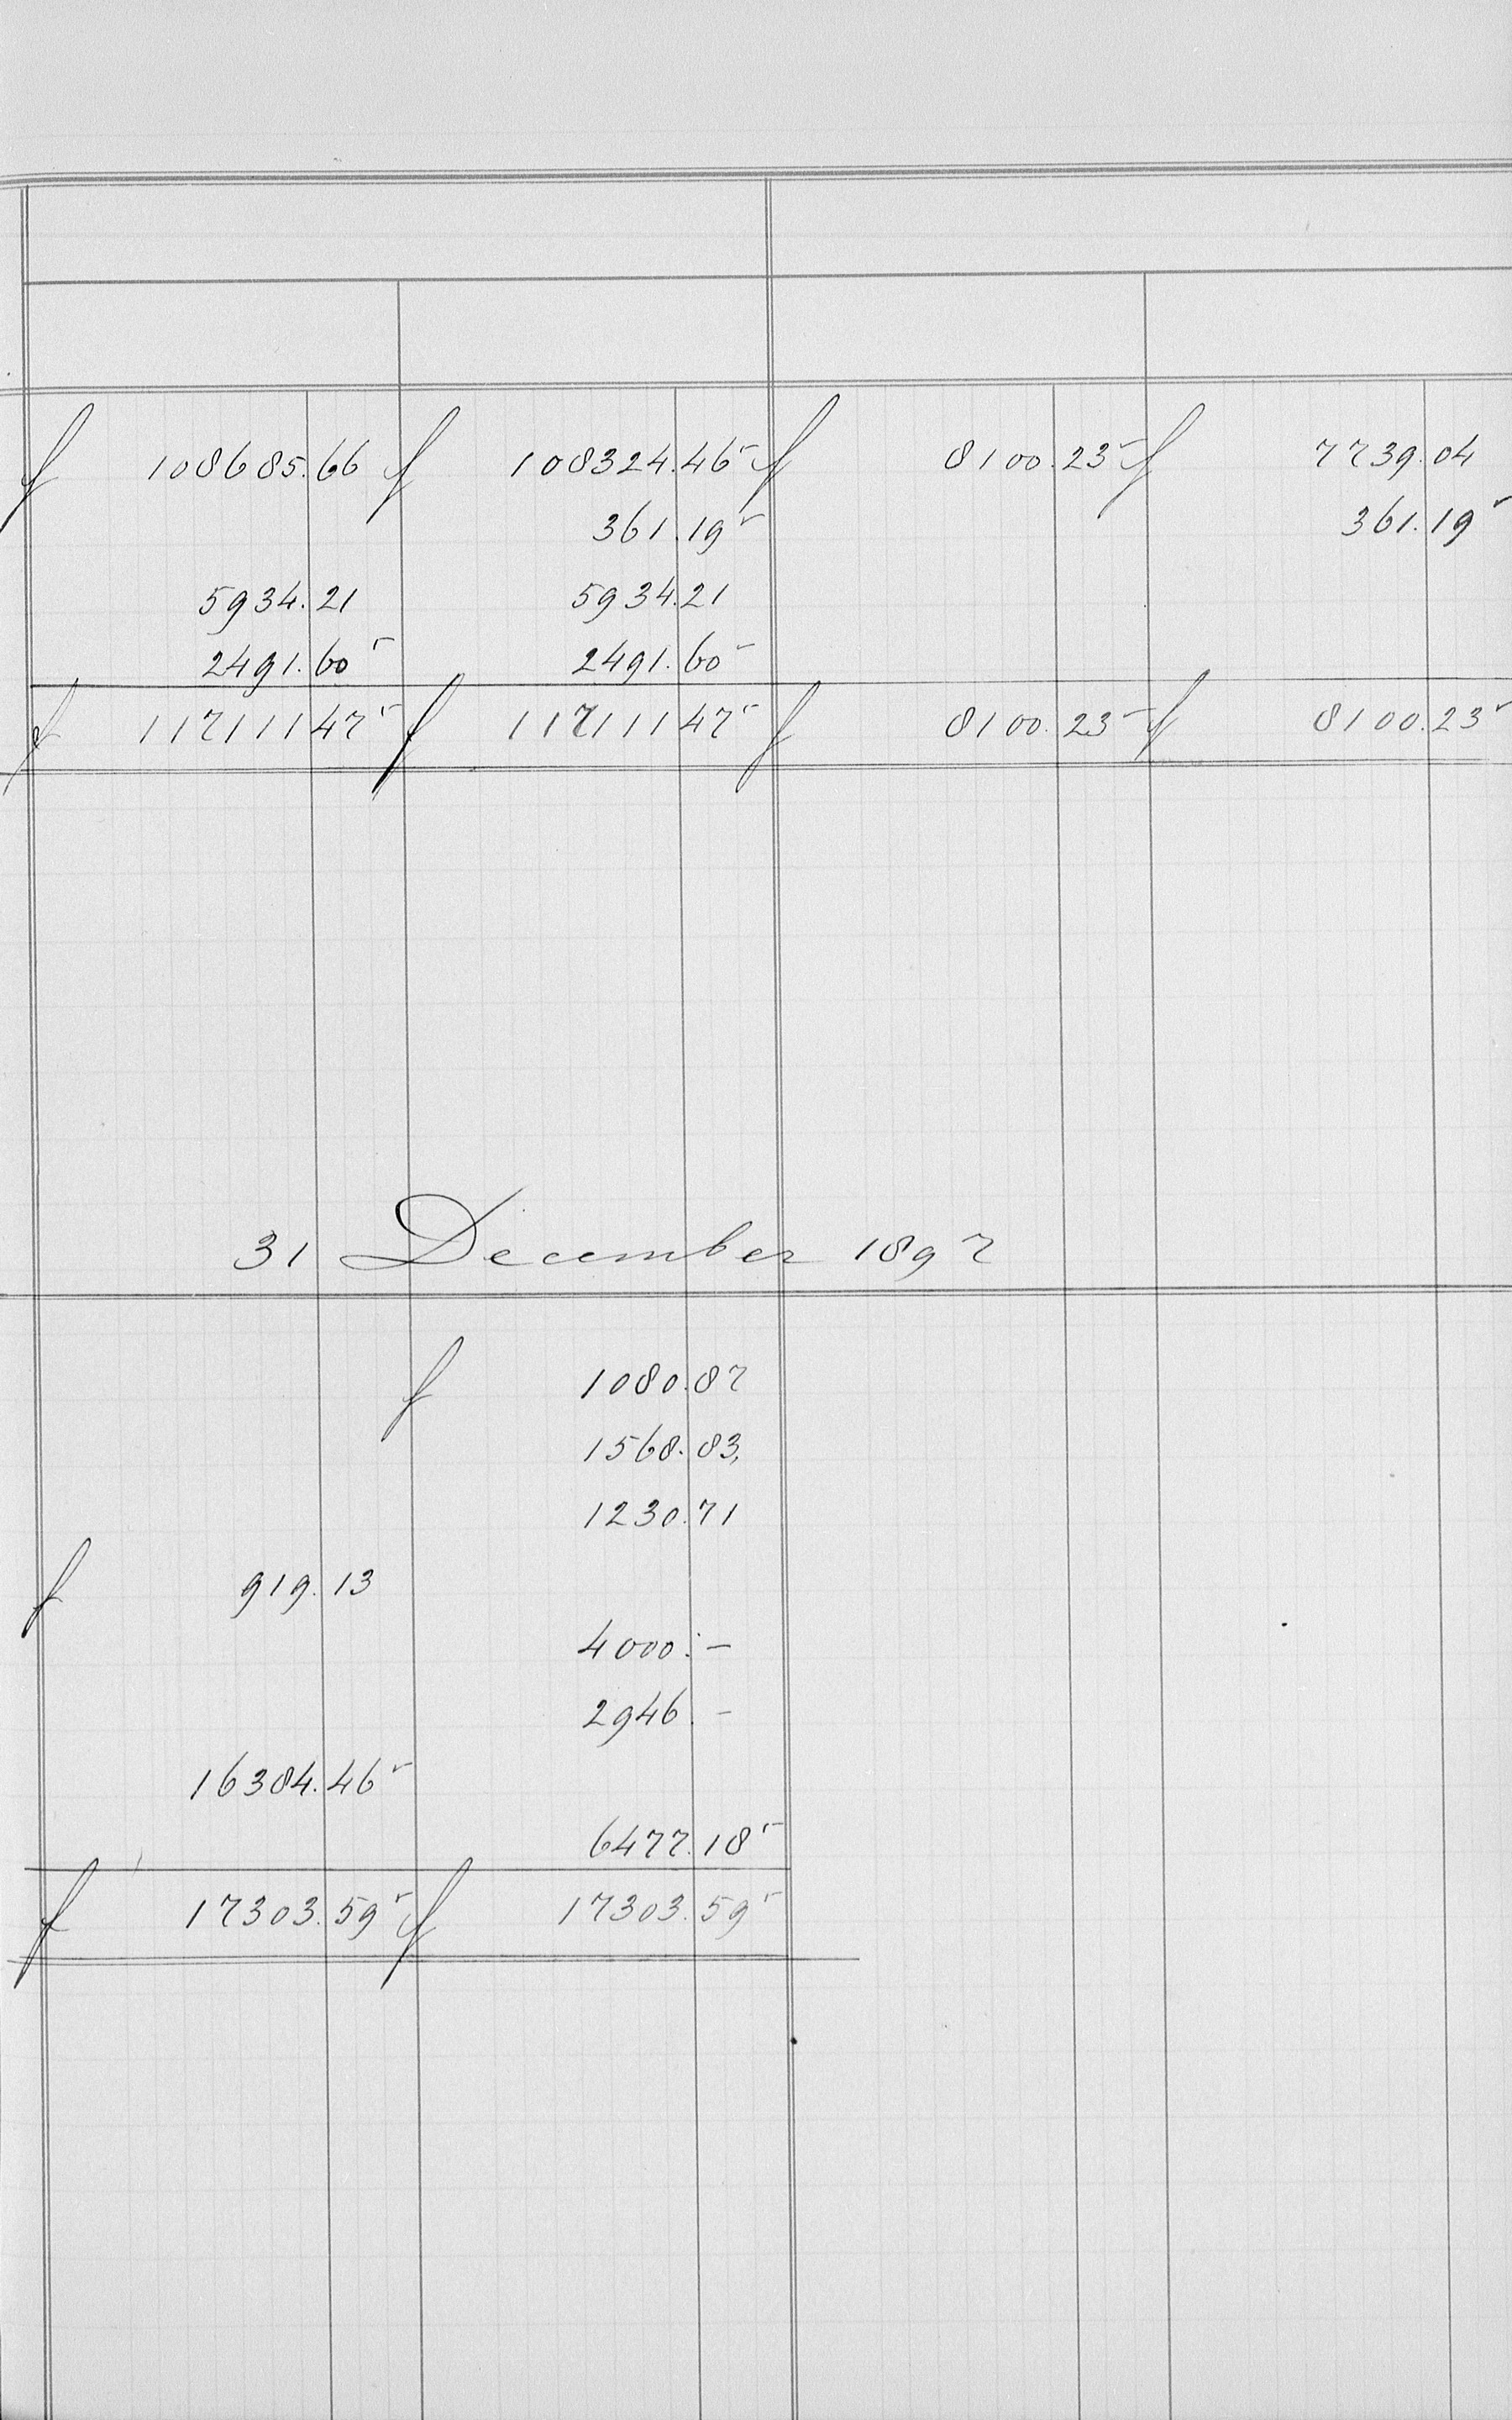 f 108685.66 f 108324.46⁵ f 8100.23⁵ f 7739.04
361.19⁵ 361.19⁵
5934.21 5934.21
2491.60⁵ 2491.60⁵
f 117111 47⁵ f 117111 47⁵ f 8100.23⁵ f 8100.23⁵
31 December 1897
f 1080.87
1568.83,
1230.71
f 919.13
4000.-
2946.-
16384.46⁵
6477.18⁵
f 17303.59⁵ f 17303.59⁵